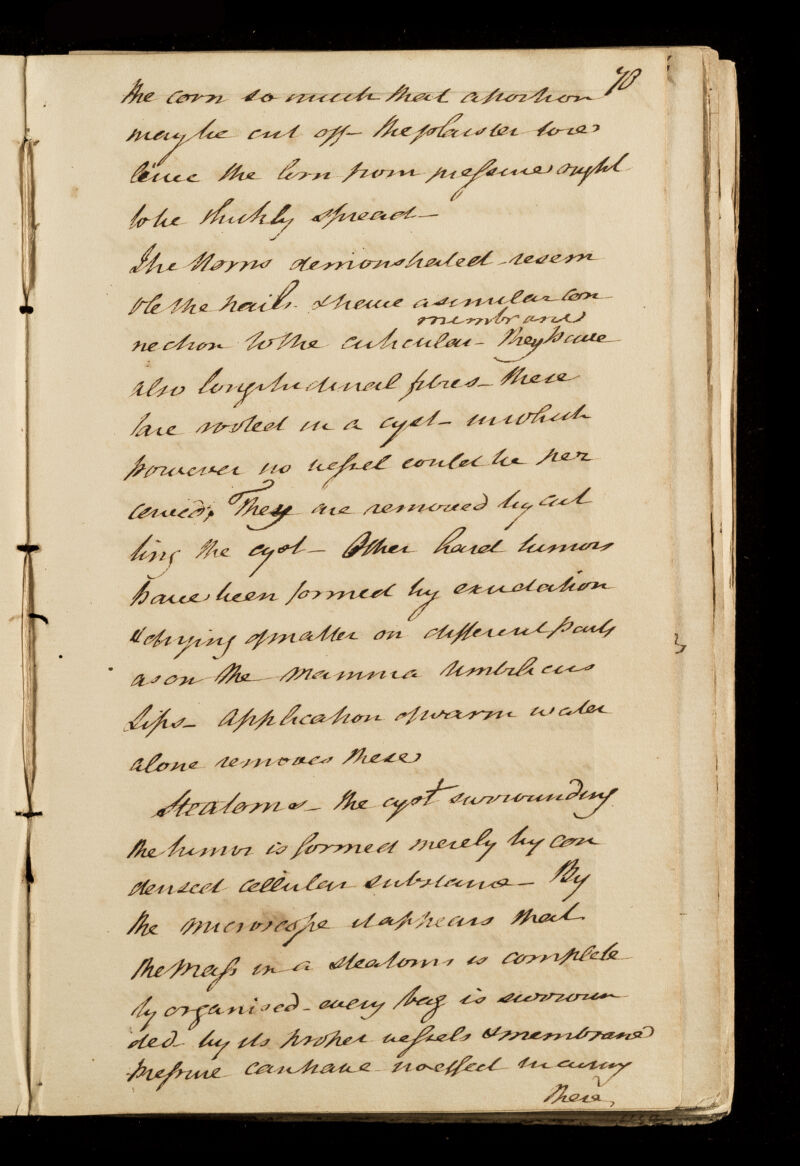 78
the corn so much that a portion
may be cut off - the plaister to re
leive the corn from pressure ought
to be thickly spread -
The Horns demonstrated - resem
ble the nails & have a similar con
membrane
nection to the cuticular - They have
also longitudinal fibres - these
are rooted in a cyst - in which
however no vessel could be per
ceived; They are removed by cut
ting the cyst - Other hard tumors
have been formed by exudation
& drying of matter on different parts
as on the Mamma Umbilicus
Lips - Application of warm water
alone removes these
Steatoms - the cyst surrounding
the tumor is formed merely by con
densed cellular substance - By
the microscope it appears that
the mass in a steatoms is complete
ly organised - every bag is surroun
ded by its proper vessels & membrane
pressure can have no effect in curing
these